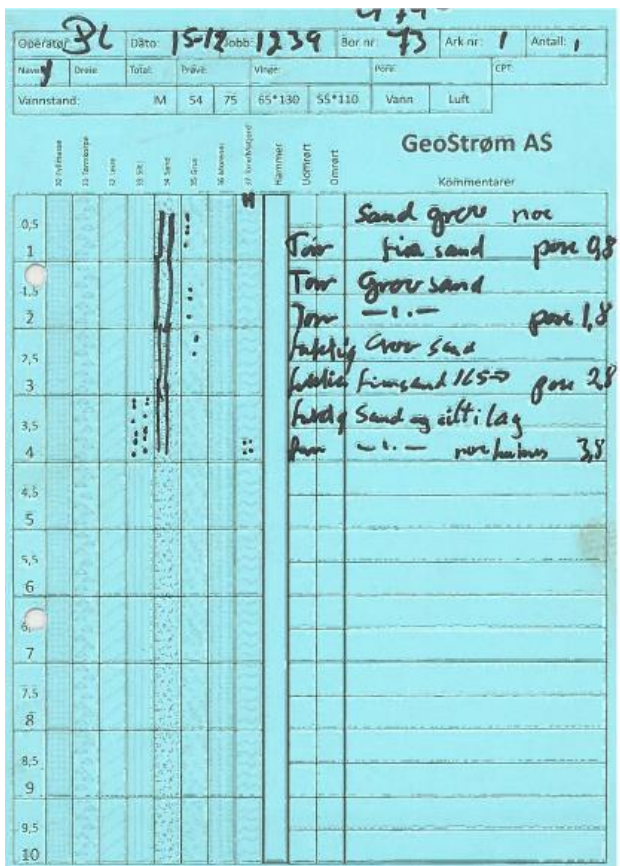 Operatør: BL Dato: 15-12 Jobb: 1239 Bor nr: 73 Ark nr: 1 Antall: 1
Naver Dreie: Total: Prøve: Vinge: Pore: CPT:
Vannstand: M 54 75 65*130 55*110 Vann Luft
30 Fyllmasse
31 Tørrskorpe
32 Leire
33 Silt
34 Sand
35 Grus
36 Morene
37 Torv/Matjord
Hammer
Uomrørt
Omrørt
GeoStrøm AS
Kommentarer
0,5 Sand grov noe
1 Tørr fin sand pose 0,8
1,5 Tørr Grov sand
2 Tørr — ı. — pose 1,8
2,5 fuktig Grov sand
3 fuktig finsand 165 => pose 2,8
3,5 fuktig Sand og silt i lag
4 — ı. — noe humus 3,8
4,5
5
5,5
6
6,
7
7,5
8
8,5
9
9,5
10